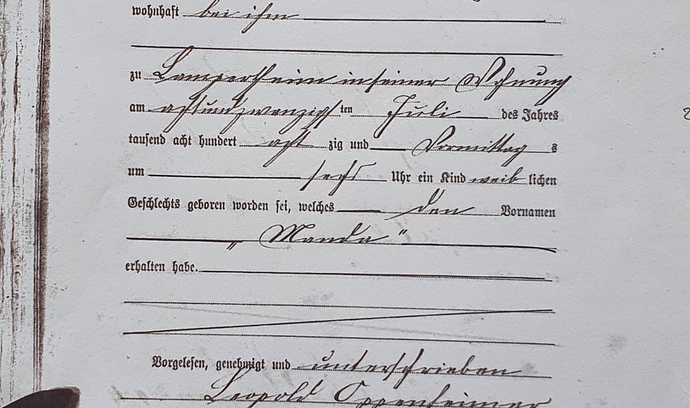 wohnhaft bei ihm
zu Lampertheim in seiner Wohnung
am achtundzwanzigsten Juli des Jahres
tausend acht hundert achtzig und Vormittags
um sechs Uhr ein Kind weiblichen
Geschlechts geboren worden sei, welches den Vornamen
„Manda"
erhalten habe.
Vorgelesen, genehmigt und unterschrieben
Leopold Oppenheimer